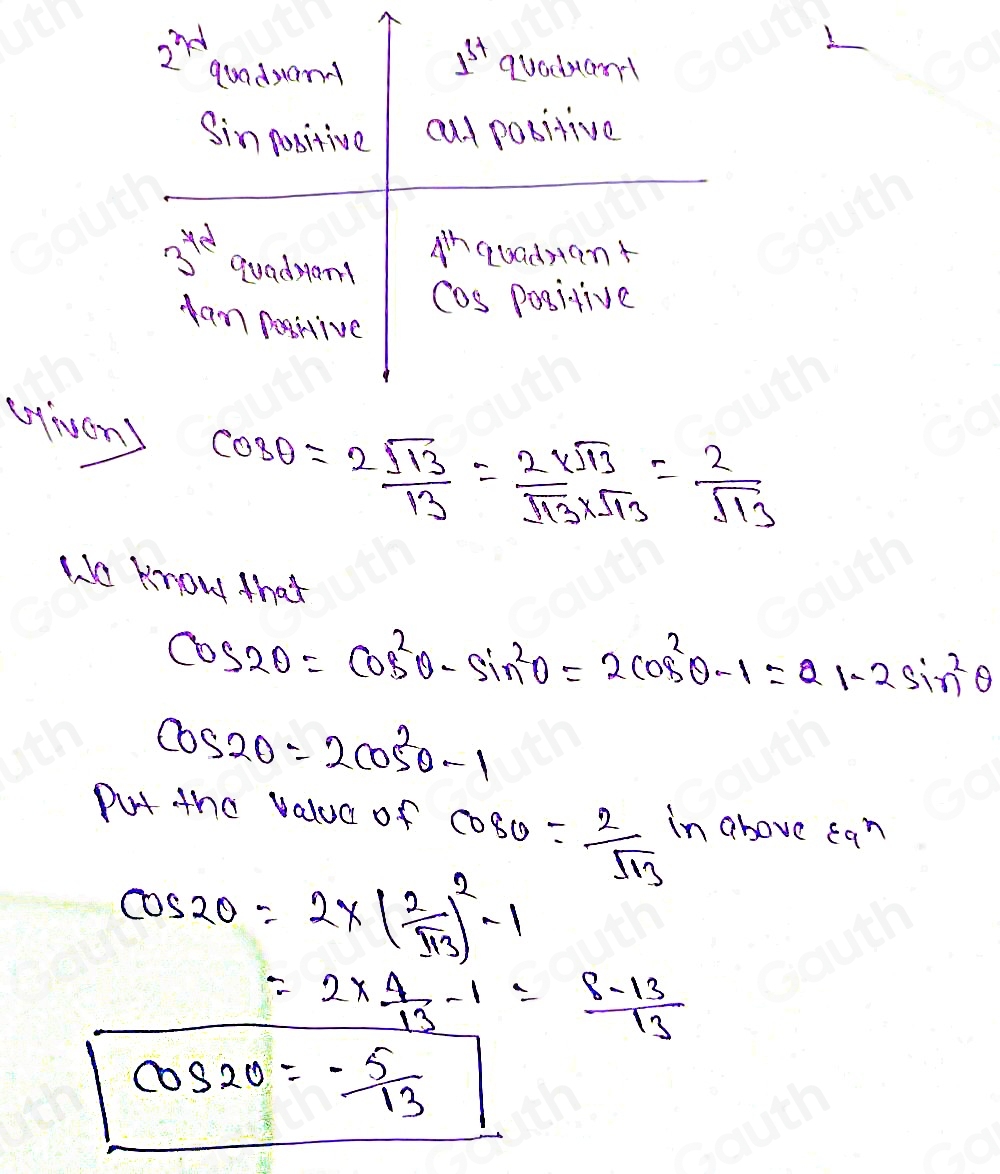 2nd quadrant
Sin positive
1st quadrant
all positive
3rd quadrant
tan positive
4th quadrant
Cos positive
Given)
cosθ = 2 √13/13 = 2×√13/√13×√13 = 2/√13
We know that
Cos2θ = cos²θ - sin²θ = 2cos²θ - 1 = 1 - 2 sin²θ
Cos2θ = 2cos²θ - 1
Put the value of cosθ = 2/√13 in above eqn
cos2θ = 2× (2/√13)² - 1
= 2 × 4/13 - 1 = 8-13/13
cos2θ = - 5/13
Gauth